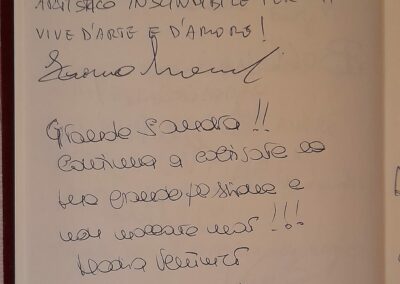 ARTISTICO INSCINDIBILE PER
VIVE D'ARTE E D'AMORE!
Grande Sandra!!
Continua a coltivare la
tua grande passione e
non mollare mai!!!